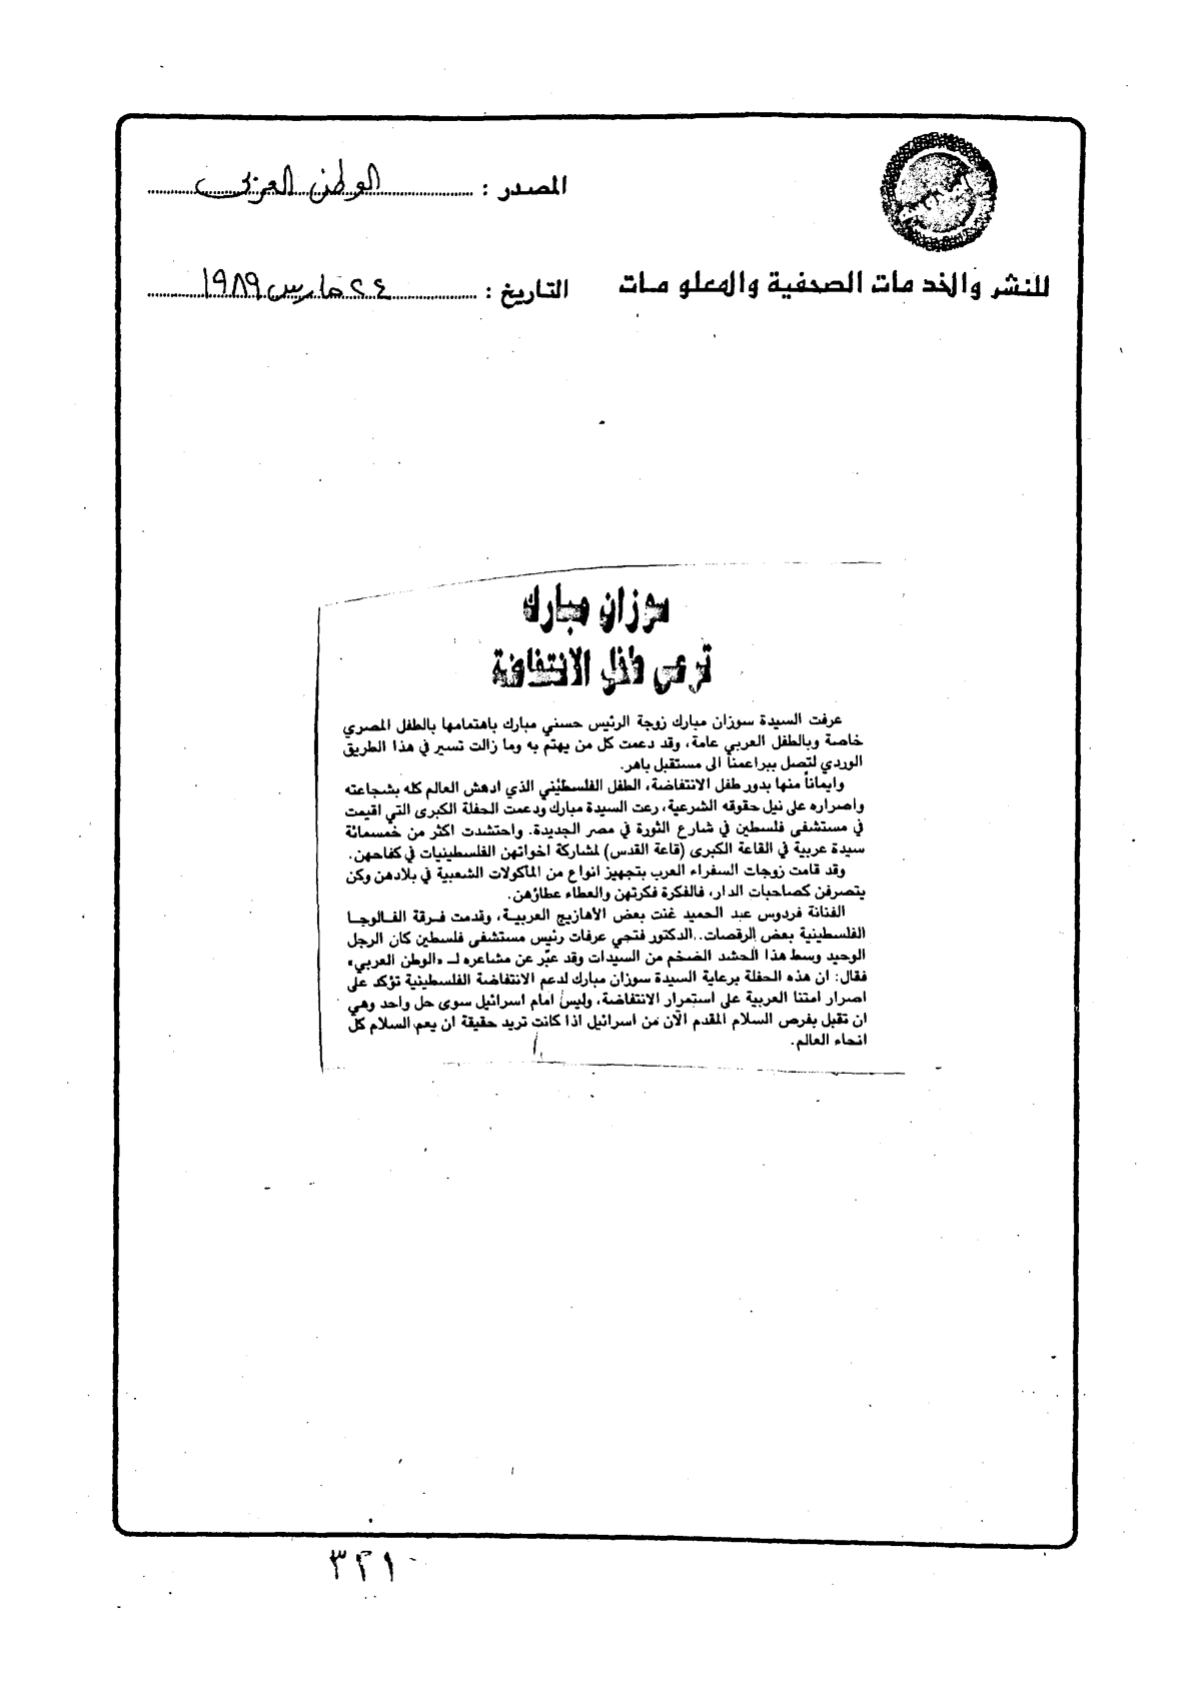 المصدر : الوطن العربي
للنشر والخدمات الصحفية والمعلومات
التاريخ : ٢٤ مارس ١٩٨٩
سوزان مبارك
ترعى طفل الانتفاضة
عرفت السيدة سوزان مبارك زوجة الرئيس حسني مبارك باهتمامها بالطفل المصري
خاصة وبالطفل العربي عامة، وقد دعمت كل من يهتم به وما زالت تسير في هذا الطريق
الوردي لتصل ببراعمنا الى مستقبل باهر.
وايماناً منها بدور طفل الانتفاضة، الطفل الفلسطيني الذي ادهش العالم كله بشجاعته
واصراره على نيل حقوقه الشرعية، رعت السيدة مبارك ودعمت الحفلة الكبرى التي اقيمت
في مستشفى فلسطين في شارع الثورة في مصر الجديدة. واحتشدت اكثر من خمسمائة
سيدة عربية في القاعة الكبرى (قاعة القدس) لمشاركة اخواتهن الفلسطينيات في كفاحهن.
وقد قامت زوجات السفراء العرب بتجهيز انواع من المأكولات الشعبية في بلادهن وكن
يتصرفن كصاحبات الدار، فالفكرة فكرتهن والعطاء عطاؤهن.
الفنانة فردوس عبد الحميد غنت بعض الأهازيج العربية، وقدمت فرقة الفالوجا
الفلسطينية بعض الرقصات. الدكتور فتحي عرفات رئيس مستشفى فلسطين كان الرجل
الوحيد وسط هذا الحشد الضخم من السيدات وقد عبّر عن مشاعره لـ «الوطن العربي»
فقال: ان هذه الحفلة برعاية السيدة سوزان مبارك لدعم الانتفاضة الفلسطينية تؤكد على
اصرار امتنا العربية على استمرار الانتفاضة، وليس امام اسرائيل سوى حل واحد وهي
ان تقبل بفرص السلام المقدم الآن من اسرائيل اذا كانت تريد حقيقة ان يعم السلام كل
انحاء العالم.
٣٢١٠